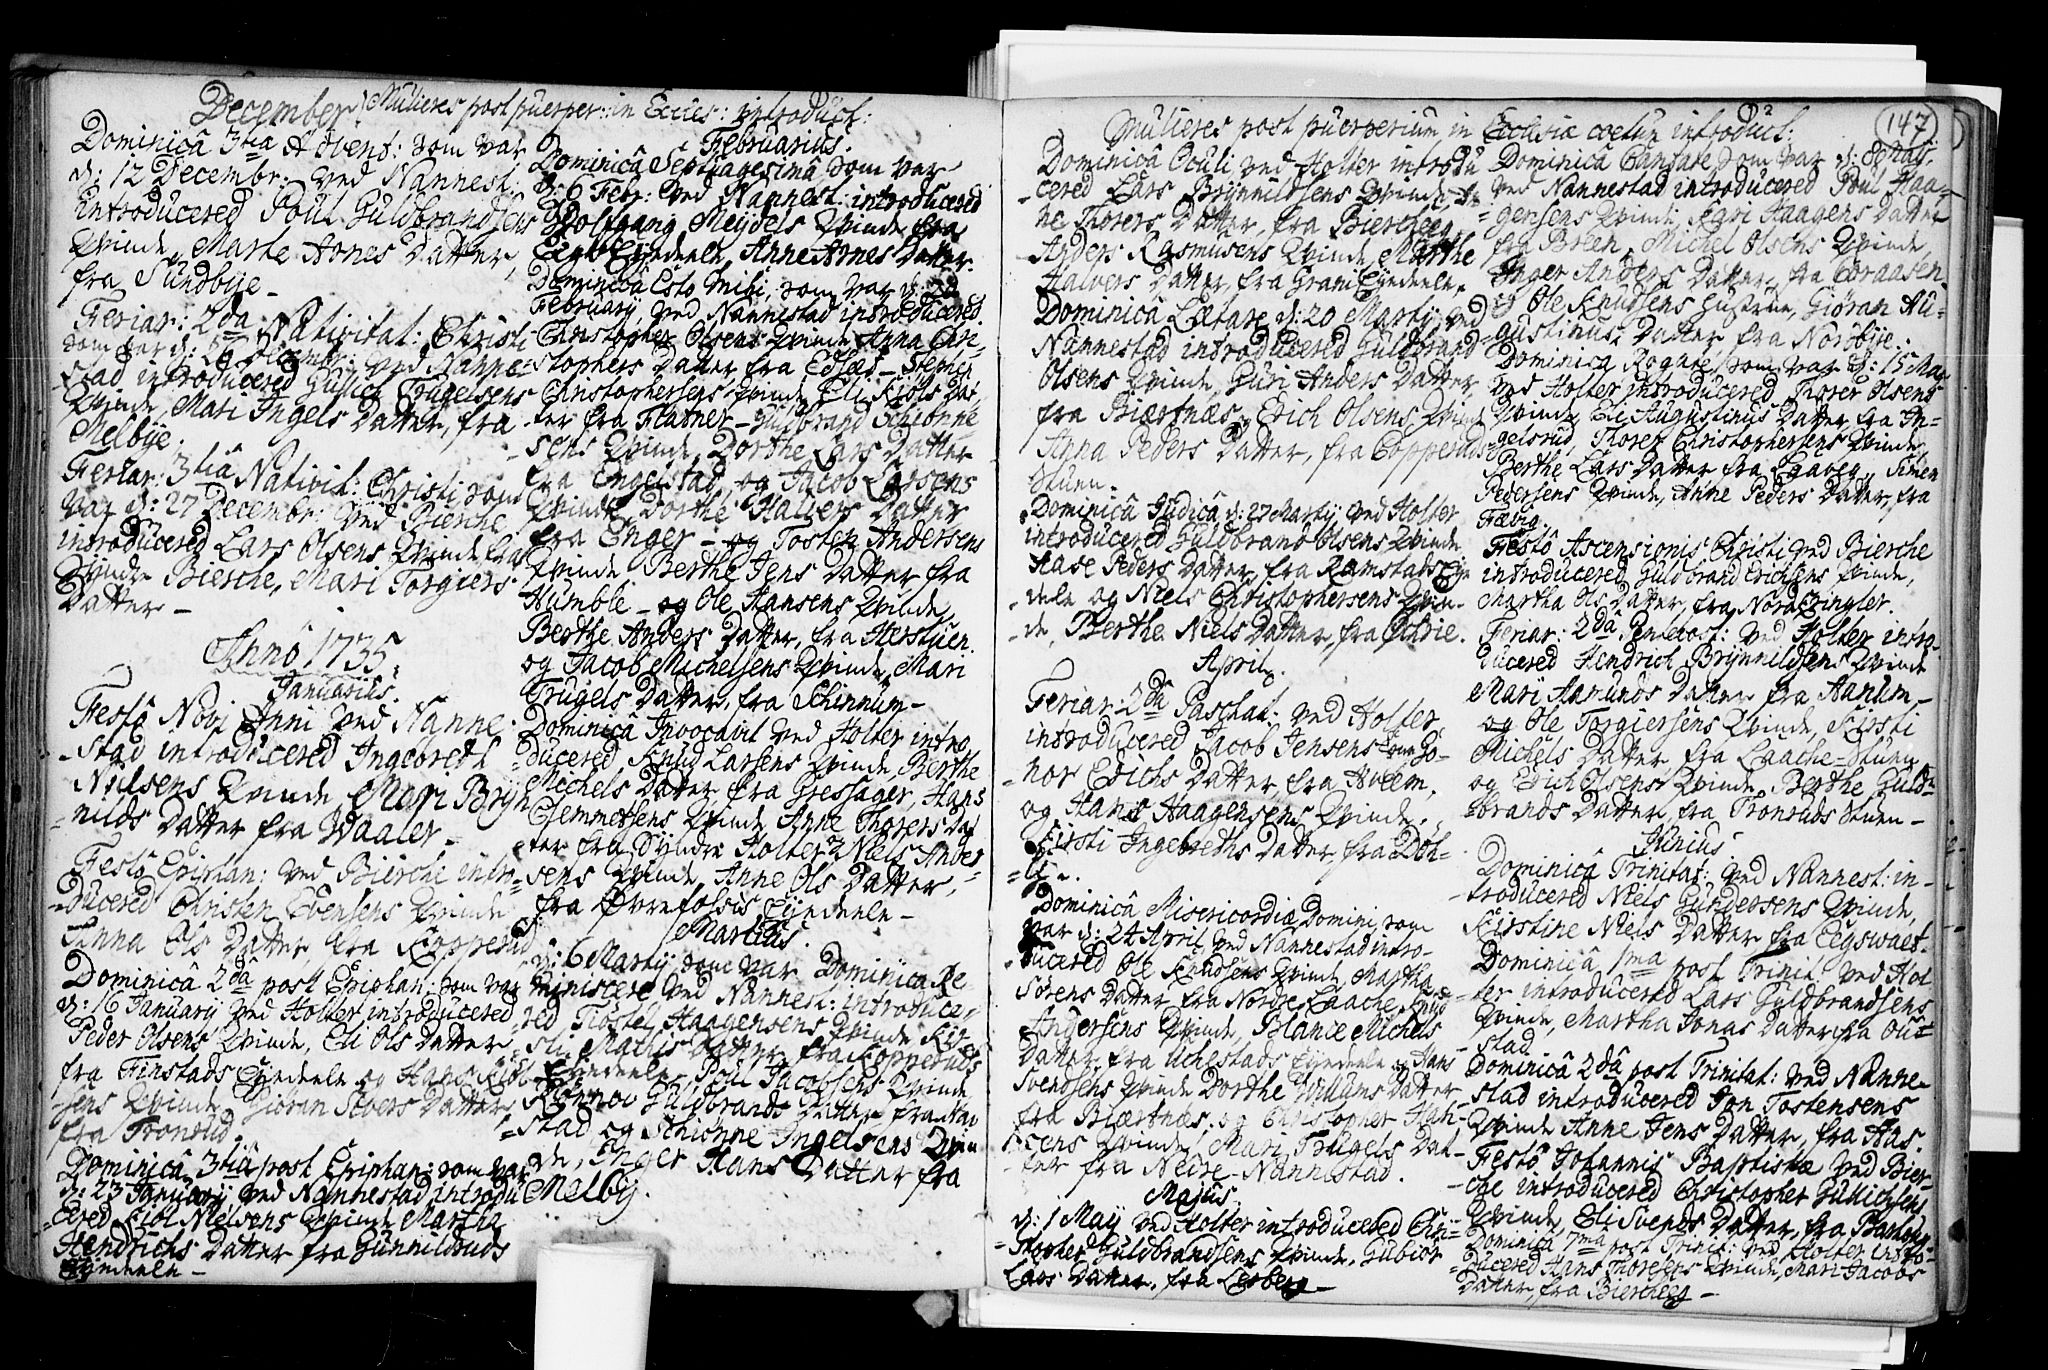 December. Mulieres post puerper: in Eccles: introduct:
Dominicâ 3tia Advent: som var
d: 12 Decembr: ved Nannest:
introducered Poul Guldbrandsens
Qvinde, Marte Arnes Datter,
fra Sundbÿe –
Feriar: 2da Nativitat: Christi
som var d: 26 Decembr: ved Nanne-
stad introducered Gullich Trugelsens
Qvinde, Mari Ingels Datter, fra
Melbÿe.
Feriar: 3tiâ Nativit: Christi som
var d: 27 Decembr: ved Bierche
introducered Lars Olsens Qvinde fra
Syndre Bierche, Mari Torgiers
Datter –
Anno 1735.
Januarius.
Festô Novi Anni ved Nanne-
stad introducered Ingebreth
Nielsens Qvinde Mari Bryn-
nilds Datter fra Waaler –
Festô Epiphan: ved Bierche intro-
ducered Christen Evensens Qvinde
Anna Ols Datter, fra Kopperud
Dominicâ 2dâ post Epiphan: som var
d: 16 Januarij ved Holter introducered
Peder Olsens Qvinde, Eli Ols Datter
fra Finstads Eyedeele og Hans
sens Qvinde Giøran Sivers Datter
fra Tronsrud.
Dominicâ 3tiâ post Epiphan: som var
d: 23 Januarij ved Nannestad introdu-
cered Kiøl Nielsens Qvinde Martha
Hendrichs Datter fra Gunnildruds
Eyedeele –
Februarius.
Dominicâ Septuagesimâ som var
d: 6 Febr: ved Nannest: introducered
Wolfgang Meijdels Qvinde fra
Eyedeele, Anne Arnes Datter.
Dominica Esto mihi, som var d: 20
Februarij, ved Nannestad introducered
Christopher Olsens Qvinde Anna Chri-
stophers Datter fra – Stephen
Christophersens Qvinde Eli Kiøls Dat-
ter fra Flatner – Guldbrand Schionne-
sens Qvinde, Dorthe Lars Datter
fra Engelstad og Jacob Larsens
Qvinde Dorthe Halvers Datter
fra Enger – og Tosten Andersens
Qvinde Berthe Jens Datter fra
Humble – og Ole Hansens Qvinde,
Berthe Anders Datter, fra Herstuen
og Jacob Michelsens Qvinde, Mari
Trugels Datter, fra Schennum –
Dominicâ Invocavit ved Holter intro-
ducered Knud Larsens Qvinde Berthe
Michels Datter fra Gressager, Hans
Clemmetsens Qvinde Anne Thorers Dat-
ter fra Syndre Holter & Niels Ander-
sens Qvinde, Anne Ols Datter,
fra Øvrefossis Eyedeele –
Martius.
d: 6 Martij som var Dominica Re-
miniscere ved Nannest: introduce-
red Tiostel Haagensens Qvinde Kir-
sti Mathis Datter fra Kopperuds
Eyedeele, Poul Jacobsens Qvinde
Rønnov Guldbrands Datter fra
stad og Schionne Ingelsens Qvin-
de, Inger Hans Datter fra
Melby.
147
Mulieres post puerperium in Ecclesiæ coetum introduct:
Dominicâ Oculi ved Holter introdu-
cered Lars Brynnildsens Qvinde
Thorers Datter, fra Biercheeg,
Anders Rasmusens Qvinde, Marthe
Halvers Datter, fra Grani Eyedeele.
Dominicâ Lætare d: 20 Martij ved
Nannestad introducered Guldbrand
Olsens Qvinde, Guri Anders Datter,
fra Biertnæs, Erich Olsens Qvinde
Anna Peders Datter, fra Copperuds-
Stuen.
Dominicâ Judicâ d: 27 Martij ved Holter
introducered Guldbrand Olsens Qvinde
Aase Peders Datter fra Ramstads Eye-
deele og Niels Christophersens Qvin-
de, Berthe Niels Datter, fra
April.
Feriar: 2dâ Paschat: ved Holter,
introducered Jacob Jensens Qvin Go-
nor Erichs Datter, fra Aveem,
og Hans Haagensens Qvinde,
Kirsti Ingebreths Datter, fra Døh-
len.
Dominicâ Misericordiæ Domini som
var d: 24 April ved Nannestad intro-
ducered Ole Knudsens Qvinde Martha
Sørens Datter fra Nordre Laache, Knud
Andersens Qvinde, Blance Michels
Datter fra Uchestads Eyedeele, Hans
Svendsens Qvinde Dorthe Willums Datter
fra Biertnæs, og Christopher Han-
sens Qvinde Mari Trugels Dat-
ter fra Neire-Nannestad.
Majus
d: 1 Maij ved Holter introducered Chri-
stopher Guldbrandsens Qvinde, Gubiør
Lars Datter, fra Lesberg –
Dominicâ Cantate som var d: 8
ved Nannestad introducered Poul Haa-
gensens Qvinde, Kari Haagens Datter
fra Breen, Michel Olsens Qvinde
Inger Anders Datter, fra Coraasen
og Ole Knudsens Hustrue, Giøran Au-
gustinus Datter fra Nordbÿe.
Dominica Rogate som var d: 15 Maj
ved Holter introducered Thorer Olsens
Qvinde, Eli Augustinus Datter fra In-
gelsrud, Thorer Christophersens Qvinde
Berthe Lars Datter fra, Simen
Pedersens Qvinde, Anne Peders Datter, fra
Festô Ascensionis Christi ved Bierche
introducered Guldbrand Erichsens Qvinde,
Martha Ols Datter, fra Nordkringler.
Feriar: 2dâ Pentecost: ved Holter intro-
ducered Hendrich Brynnildsens Qvinde
Mari Aamunds Datter fra Hanum,
og Ole Torgiersens Qvinde, Kirsti
Michels Datter fra Laache-Stuen
og Erich Olsens Qvinde Berthe Guld-
brands Datter, fra Tronsruds Stuen –
Junius
Dominicâ Trinitat: ved Nannest: in-
troducered Niels Gundersens Qvinde,
Kirstine Niels Datter fra Eegswaet.
Dominicâ 1ma post Trinit. ved Hol-
ter introducered Lars Guldbrandsens
Qvinde, Martha Jonas Datter fra Ou-
stad.
Dominicâ 2dâ post Trinitat: ved Nanne-
stad introducered Jon Tostensens
Qvinde Anne Jens Datter, fra Aas.
Festô Johannis Baptistæ ved Bier-
che introducered Christopher Gulichsens
Qvinde, Eli Svends Datter, fra
Dominicâ 7ma post Trinit: ved Holter intro-
ducered Hans Thoresens Qvinde, Mari Jacobs
Datter, fra Biercheeg –